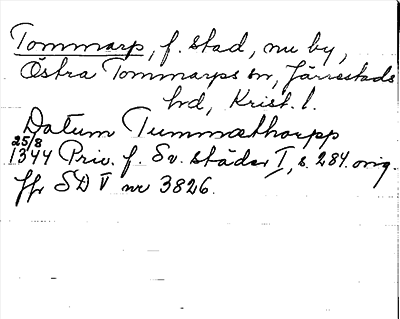 Tommarp, f. stad, nu by,
Östra Tommarps sn, Järrestads
hd, Krist. l.
Datum Tummæthorpp
25/8
1344 Priv. f. Sv. städer I, s. 284. orig.
Jfr SD V nr 3826.